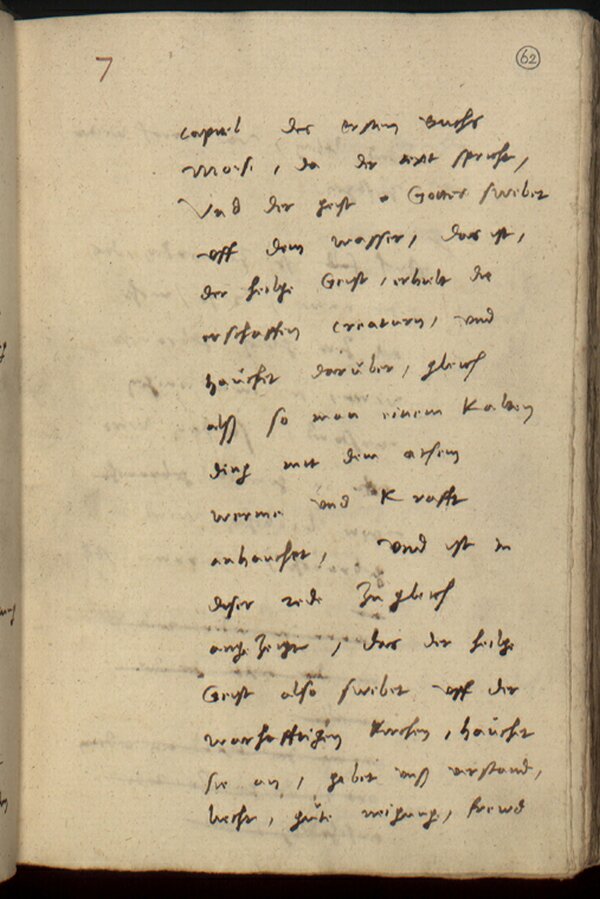 7
62
capitel des ersten Buchs
Moise, da der text spricht,
Und der geist Gottes swebet
uff dem wasser, das ist,
der heilge Geist, erhielt die
erschaffen creaturn, und
hauchet darüber, gleich
alß so man einem Kalten
ding mit dem athem
werme und Krafft
anhauchet, und ist in
diser rede zu gleich
angezeigt, das der heilge
Geist also swebet uff der
warhafftigen Kirchen, hauchet
sie an, gebet unß verstand,
liecht, gute neigung, frewd